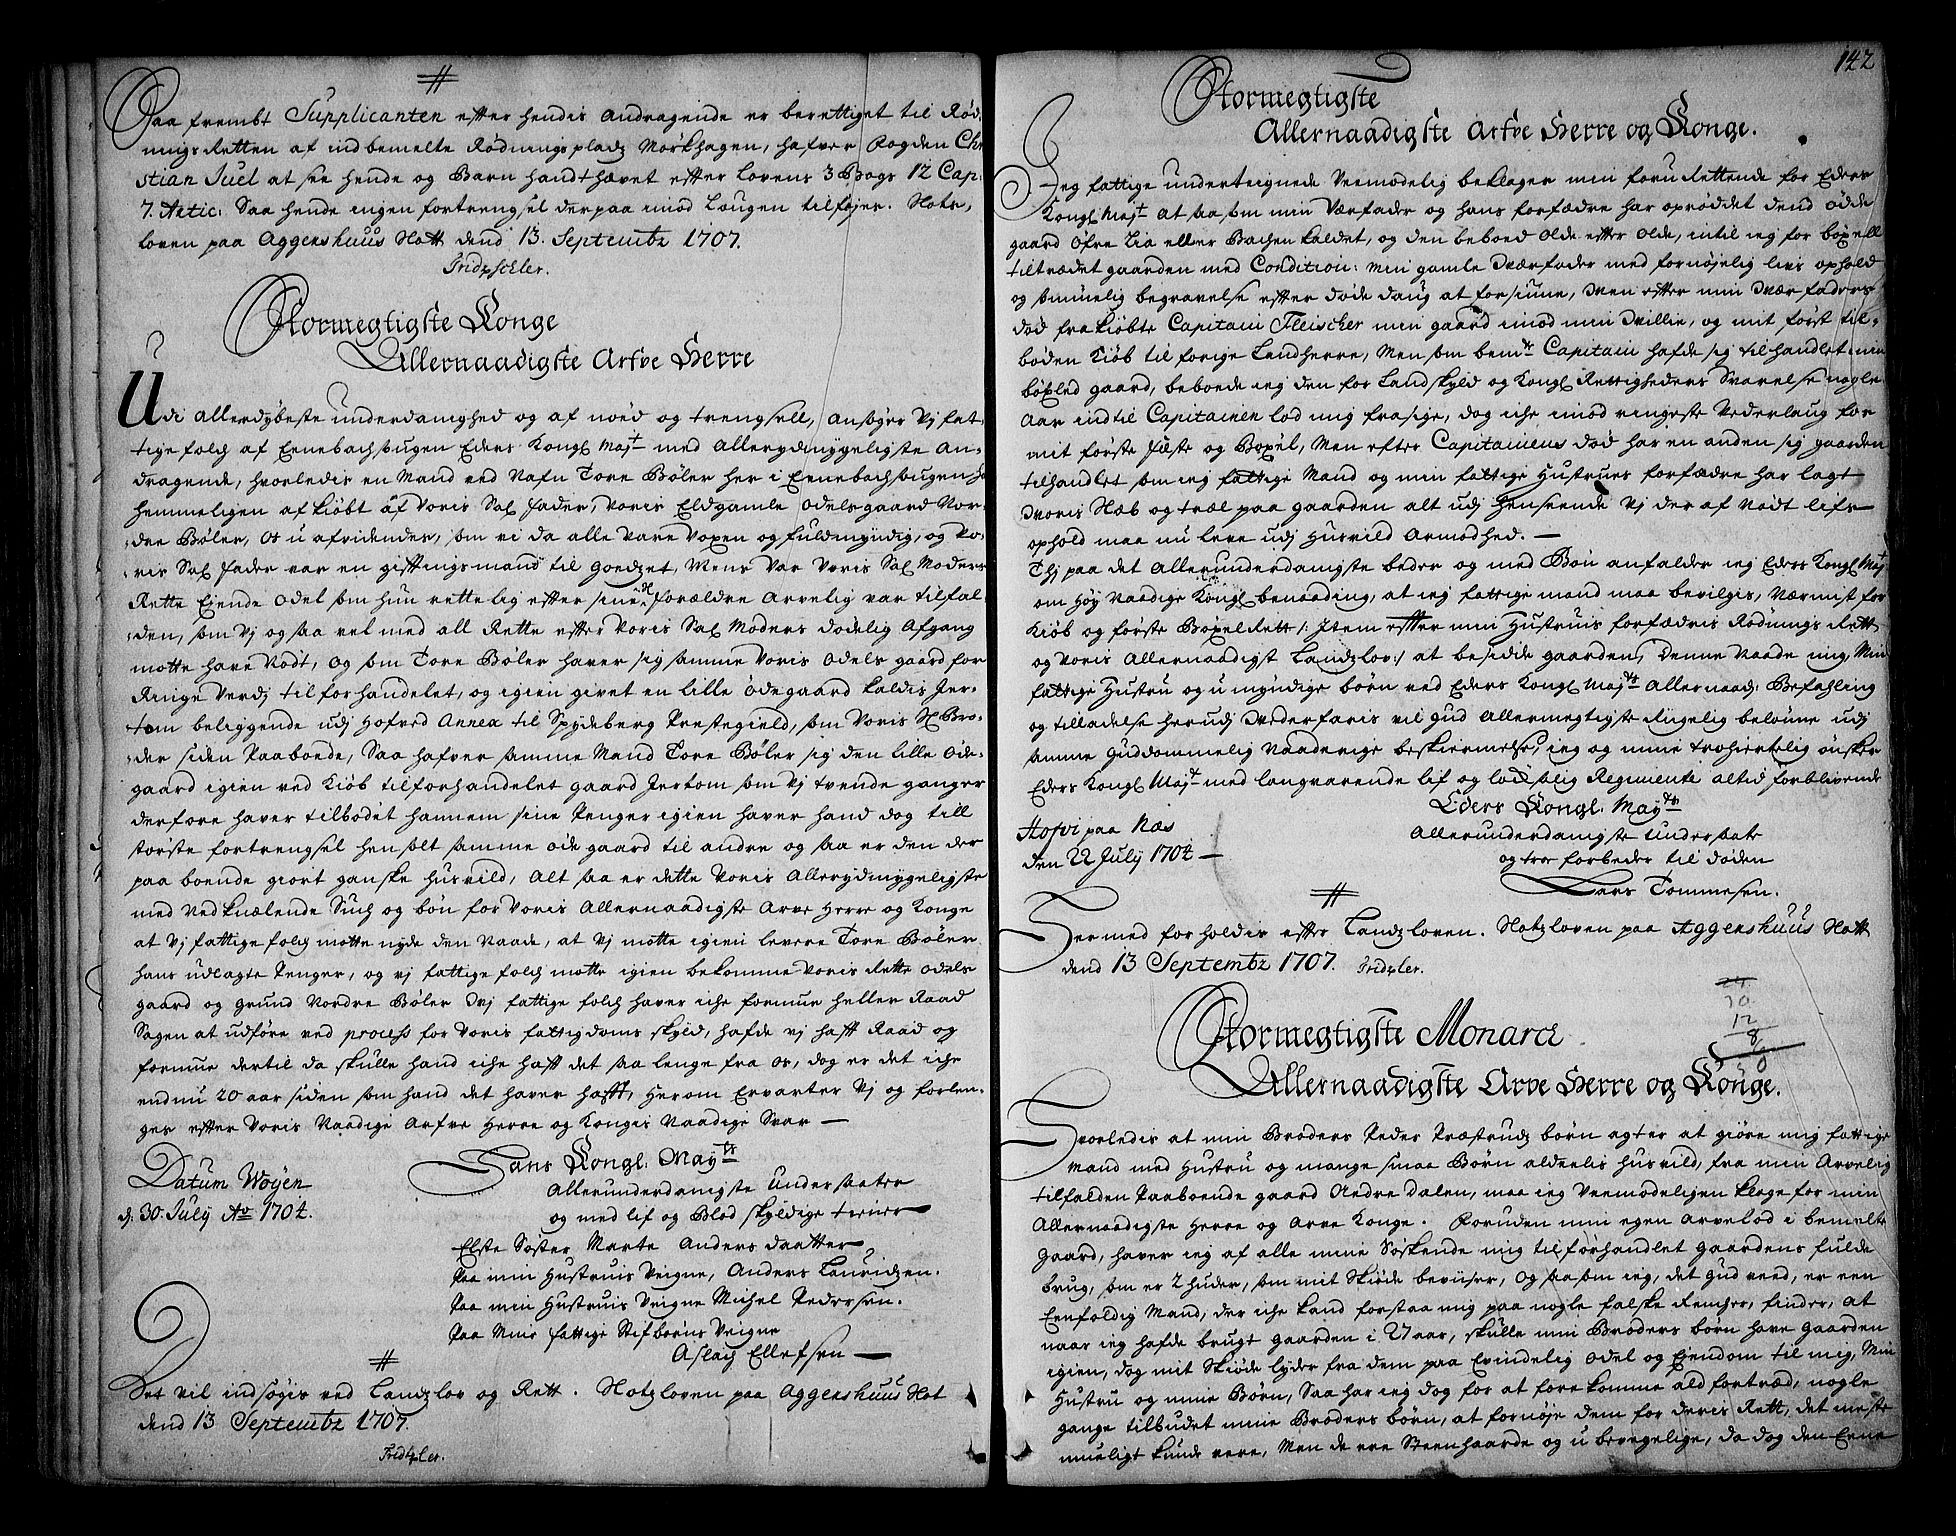 #
Saa frembt Supplicanten efter hendis Andragende er berettiget til Rød-
nings Retten af indbemelte Rødningsplads Mørkhagen, hafver Fogden Chri
stian Juel at see hende og Barn handthævet efter Lovens 3 Bogs 12 Cap:
7. Artic: Saa hende ingen fortrengsel derpaa imod Lougen tilføjes. Slots,
loven paa Aggershuus Slott dend 13. Septembr 1707.
Stormegtigste Konge
Allernaadigste Arfve Herre
Udi allerdybeste underdanighed og af noed og trengsell, ansøger Vj fat-
tige folch af Ennebachsougen Eders Kongl Mayt med allerydmygeligste An-
dragende, hvorledis en Mand ved Nafn Tore Bøler her i Ennebachsougen ha
hemmeligen afkiøbt af Voris Sal fader, Voris Eldgamle odelsgaard Nor-
dre Bøler, os uafvidendes, som vi da alle vare voxen og fuldmyndig, og Vo-
ris Sal fader var en gifftingsmand til goedzet, Mens var Voris Sal Moders
Rette Ejende odel som hun rettelig efter sine forældre Arvelig var tilfal-
den, som Vj og saa vel med all Rette efter Voris Sal Moders dødelig Afgang
motte have Nødt, og som Tore Bøler haver sig samme Voris odels gaard for
Ringe Verdj tilforhandelet, og igien givet en lille ødegaard kaldis Jer-
tom beliggende udj Hofved Annex til Spydeberg Prestegield, som Voris Sl Bro-
der siden Paaboede, Saa hafver samme Mand Tore Bøler sig den lille øde-
gaard igien ved Kiøb tilforhandelet gaard Jertom som Vj tvende ganger
derfore haver tilbødet hannem sine Penger igien haver hand dog till
største fortrengsel hensolt samme øde gaard til andre og saa er den der
paa boende giort ganske husvild, Alt saa er dette Voris Allerydmygeligste
med Ved knælende Such og bøn for Voris Allernaadigste Arve Herre og Konge
at Vj fattige folch motte nyde den Naade, at Vj motte igien levere Tore Bøler
hans udlagte Penger, og vj fattige folch motte igien bekomme Voris Rette odels
gaard og grund Nordre Bøler Vj fattige folch haver iche formue heller Raad
Sagen at udføre ved process for Voris fattigdoms skyld, hafde vj hafft Raad og
formue dertil da skulle hand iche hafft det saa lenge fra os, dog er det iche
endnu 20 aar siden som hand det haver hafft, Herom Ervarter Vj og forlen-
ger efter Voris Naadige Arfve Herre og Kongis Naadige Svar —
Hans Kongl. Mayts
Datum Wøyen
Allerunderdanigste Undersaater
d. 30 July Ao 1704.
og med lif og Blod skyldige tienere
Elste Søster Marte Anders daatter
Paa min Hustruis Veigne, Anders Lauridzen.
Paa min Hustruis Veigne Michel Pedersen.
Paa Mine fattige Stifbørns Veigne
Aslach Ellefsen —
#
Det vil indsøgis ved Landzlov og Rett. Slotzloven paa Aggershuus Slot
dend 13 Septembr 1707.
142
Stormegtigste
Allernaadigste Arfve Herre og Konge.
Jeg fattige underteignede Veemodelig beklager min foruRettende for Eders
Kongl Mayt at saasom min Værfader og hans forfædre har oprøddet dend øde
gaard Øfre Lia eller Bachen kaldet, og den beboed olde efter olde, intil ieg for bøxell
tiltrædet gaarden med Condition: min gamle Værfader med fornøjelig livs ophold
og sømmelig begravelse efter døde daug at forsiune, Men efter min Værfaders
død frakiøbte Capitain Fleischer min gaard imod min Villie, og mit først til-
boden Kiøb til forige Landherre, Men som bemte Capitain hafde sig tilhandlet min
bøxled gaard, beboede ieg den for Landskyld og Kongl Rettigheders Svarelse nogle
Aar indtil Capitainen lod mig frasige, dog iche imod ringeste Vederlaug for
mit første fæste og Boxel, Men efter Capitainens død har en anden sig gaarden
tilhandlet som ieg fattige Mand og min fattige Hustrues forfædre har lagt
Voris Slæb og træl paa gaarden alt udj Henseende Vj der af Nødt lifs
ophold maa nu leve udj Husvild Armodhed. —
Thj paa det Allerunderdanigste beder og med Bøn anfalder ieg Eders Kongl Mayt
om Høy Naadige Kongl benaading, at ieg fattige mand maa bevilgis, Nærmist for
Kiøb og første Boxel Rett /: Item efter min Hustruis forfædris Rødnings Rett
og Voris Allernaadigst Landzlov:/ at besidde gaarden, Denne Naade mig, Min
fattige Hustru og umyndige børn ved Eders Kongl Mayts Allernaad: Befahling
og tilladelse herudj Vederfaris vil Gud Allermegtigste Rigelig beløne udj
samme Guddommelig Naaderige beskiermelse, ieg og mine trohiertelig ønsker
Eders Kongl Mayt med langvarende lif og lovsalig Regimente altid forblivende
Eders Kongl. Mayts
Hofvi paa Næs
Allerunderdanigste Undersaatt
den 22 July 1704 —
og troe forbeder til døden
Lars Tommesen.
#
Hermed forholdis efter Landzloven. Slotzloven paa Aggershuus Slott
dend 13 Septembr 1707.
24.
30
12
8
Stormegtigste Monarch
Allernaadigste Arve Herre og Konge.
Hvorledis at min Broders Peder Præstruds børn agter at giøre mig fattige
Mand med Hustru og mange smaa Børn aldeelis husvild, fra min Arvelig
tilfalden Paaboende gaard Nedre Dalen, maa ieg Veemodeligen klage for min
Allernaadigste Herre og Arve Konge. Foruden min egen arvelod i bemelte
Gaard, haver ieg af alle mine Søskende mig tilforhandlet Gaardens fulde
brug, som er 2 huder, som mit Skiøde beviiser, Og saasom ieg, det Gud veed, er een
Eenfoldig Mand, der iche kand forstaa mig paa nogle falske Rencher, finder, At
naar ieg hafde brugt gaarden i 27 aar, skulle min Broders børn have gaarden
igien, dog mit Skiøde lyder fra dem paa Evindelig odel og Ejendom til mig, Min
Hustru og mine Børn, Saa har ieg dog for at forekomme ald fortræd, nogle
gange tilbudet mine Broders børn, at fornøje dem for deris Rett, det meste
mueligt kunde vere, Men de ere Steenhaarde og ubevegelige, da dog den Eene